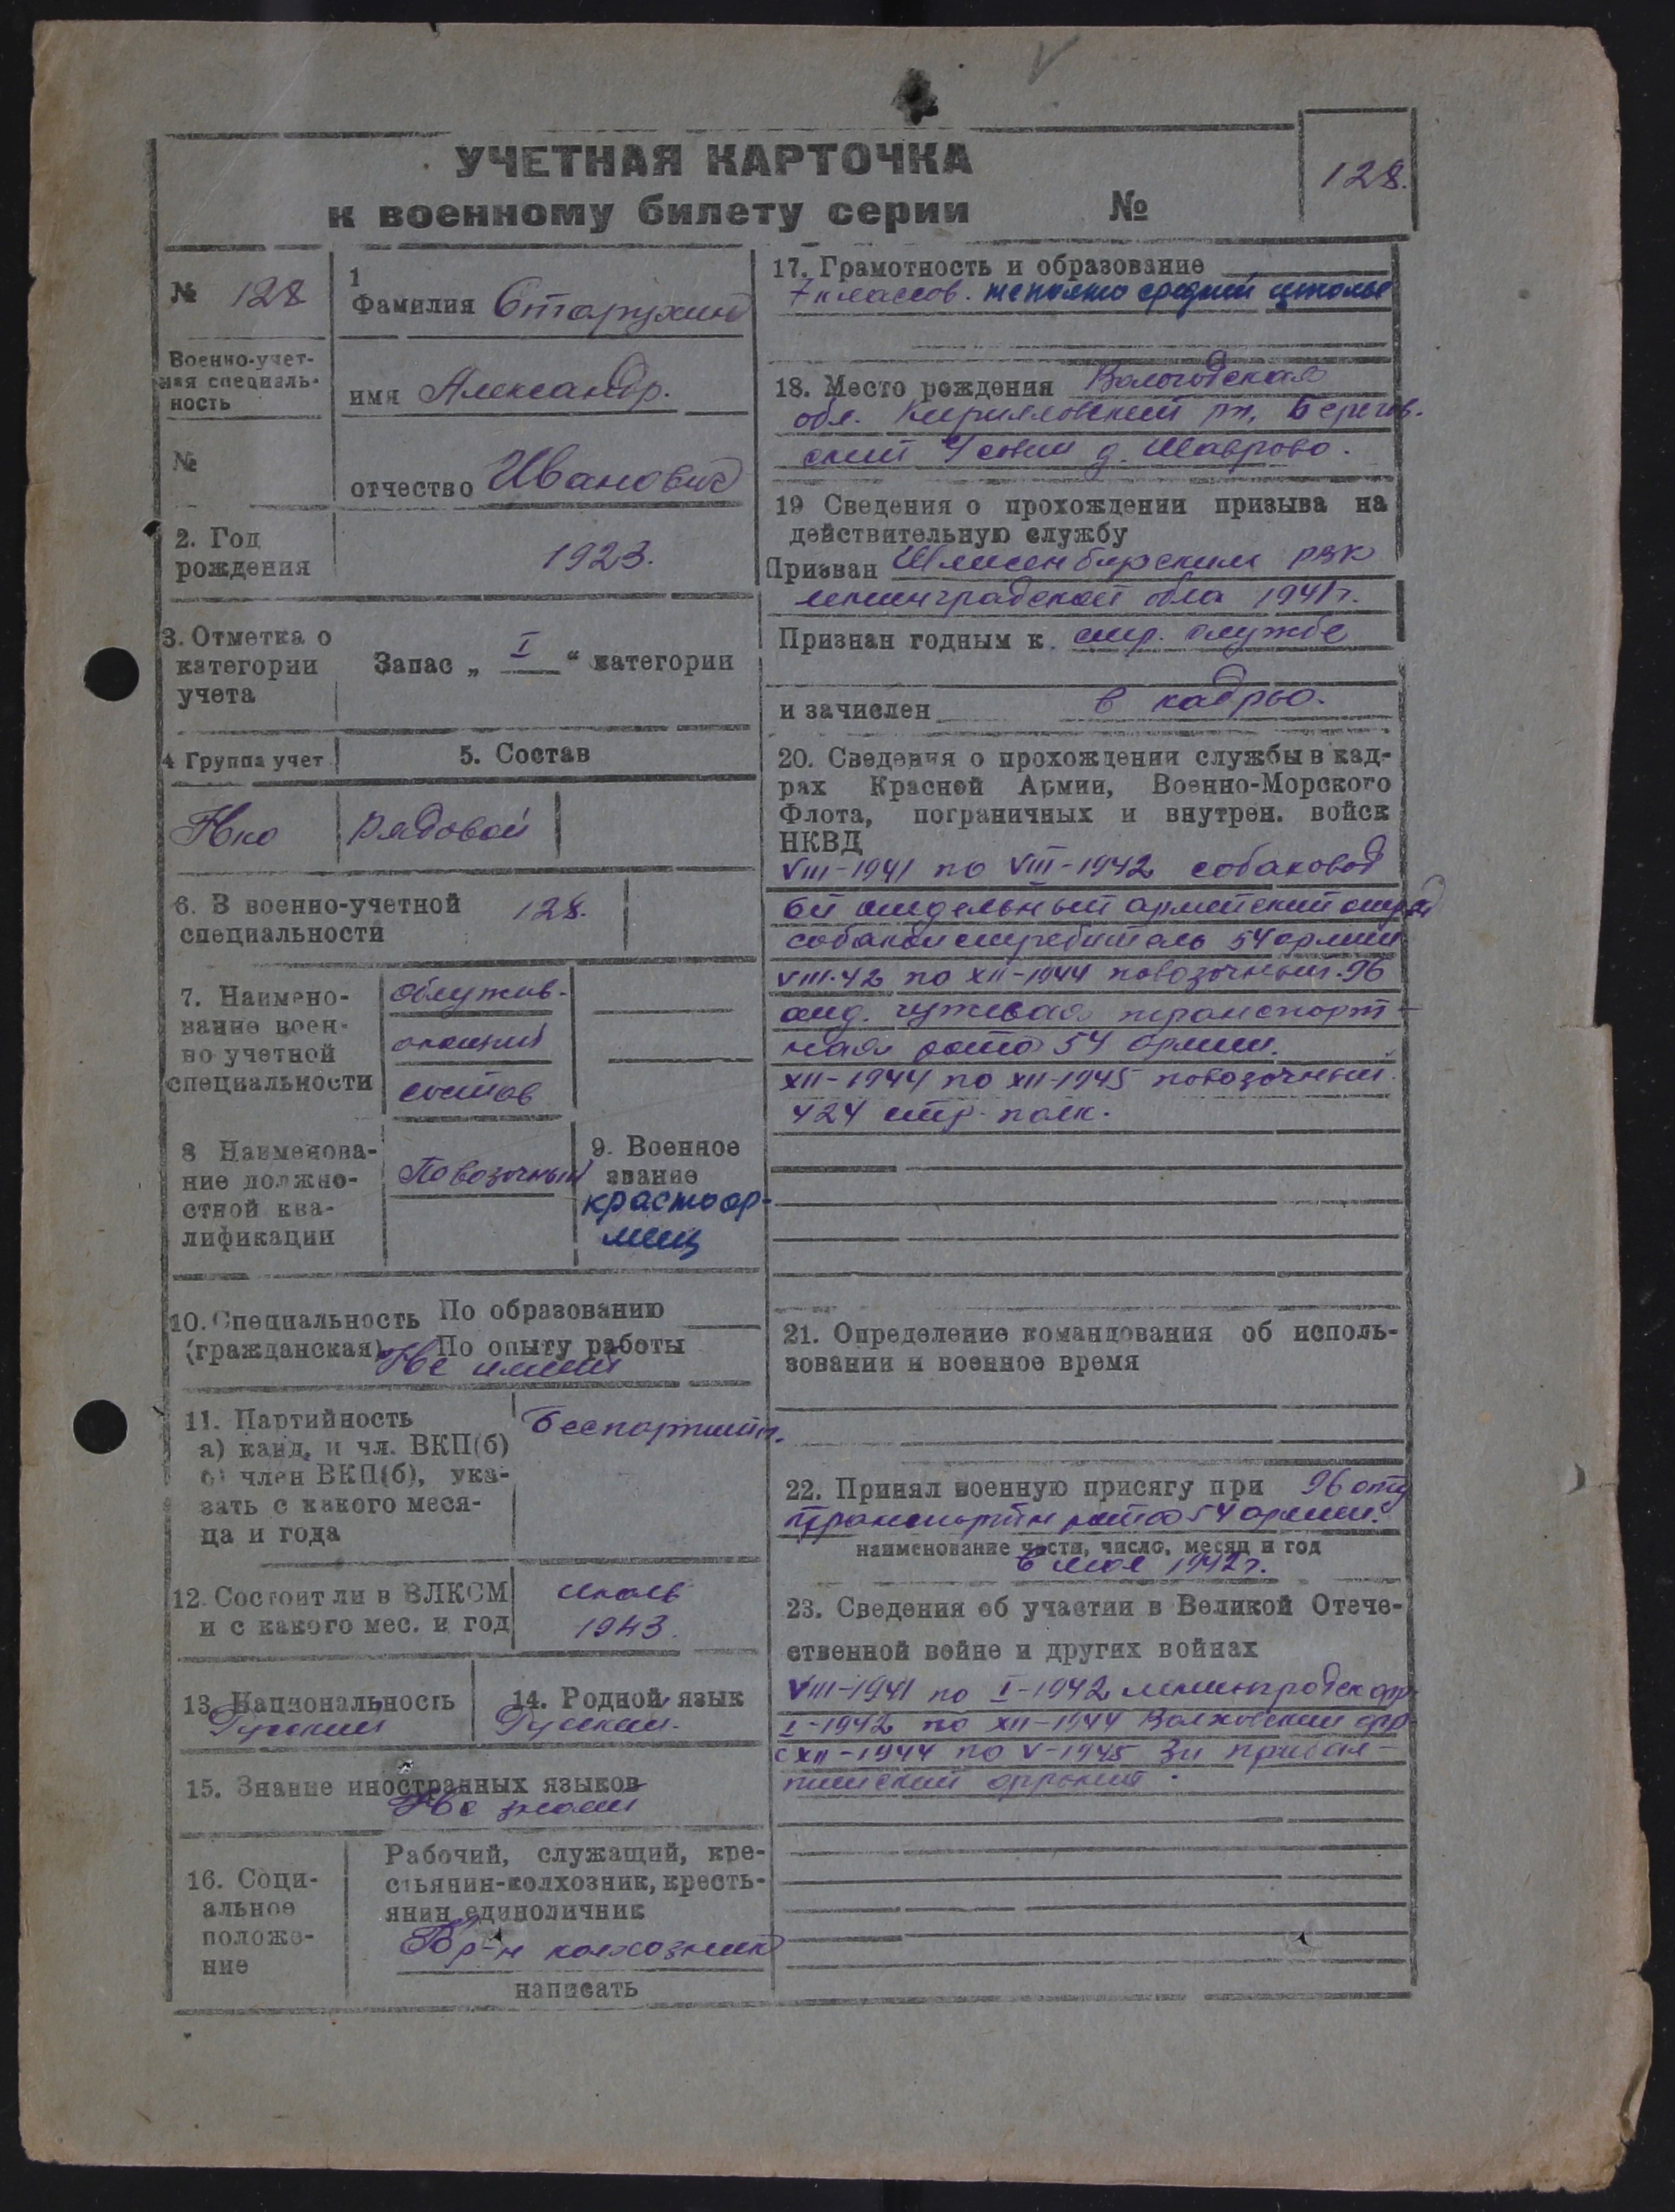 128.
УЧЕТНАЯ КАРТОЧКА
к военному билету серии №
№ 128
Военно-учет-
ная специаль-
ность
№
1
Фамилия Старухин
имя Александр.
отчество Иванович
2. Год
рождения
1923.
3. Отметка о
категории
учета
Запас „ I “ категории
4 Группа учет
5. Состав
Нко
рядовой
6. В военно-учетной
специальности
128.
7. Наимено-
вание воен-
но учетной
специальности
обслужив-
ающий
состав
8 Наименова-
ние должно-
стной ква-
лификации
Повозочный
9. Военное
звание
красноар-
меец
10. Специальность По образованию
(гражданская) По опыту работы
Не имеет
11. Партийность
а) канд. и чл. ВКП(б)
б) член ВКП(б), ука-
зать с какого меся-
ца и года
Беспартийн.
12. Состоит ли в ВЛКСМ
и с какого мес. и год
июль
1943.
13. Национальность
Русский
14. Родной язык
Русский.
15. Знание иностранных языков
Не знает
16. Соци-
альное
положе-
ние
Рабочий, служащий, кре-
стьянин-колхозник, кресть-
янин единоличник
Кр-н колхозник
написать
17. Грамотность и образование
7 классов. неполно средней школы
18. Место рождения Вологодская
обл. Кирилловский рн, Берегов.
ский с/совет д. Шаврово.
19 Сведения о прохождении призыва на
действительную службу
Призван Шлисенбургским РВК
ленинградской обла 1941г.
Признан годным к стр. службе
и зачислен в кадры.
20. Сведения о прохождении службы в кад-
рах Красной Армии, Военно-Морского
Флота, пограничных и внутрен. войск
НКВД
VIII-1941 по VIII-1942 собаковод
6й отдельный армейский отряд
собак истребитель 54 армии
VIII-42 по XII-1944 повозочный. 96
отд. гужевая транспорт-
ная рота 54 армии.
XII-1944 по XII-1945 повозочный.
424 стр. полк.
21. Определение командования об исполь-
зовании и военное время
22. Принял военную присягу при 96 отд
транспортн рота 54 армии.
наименование части, число, месяц и год
в мая 1942г.
23. Сведения об участии в Великой Отече-
ственной войне и других войнах
VIII-1941 по I-1942 ленинградск фр
I-1942 по XII-1944 Волховский фр
с XII-1944 по V-1945 3й прибал-
тийский фронт.